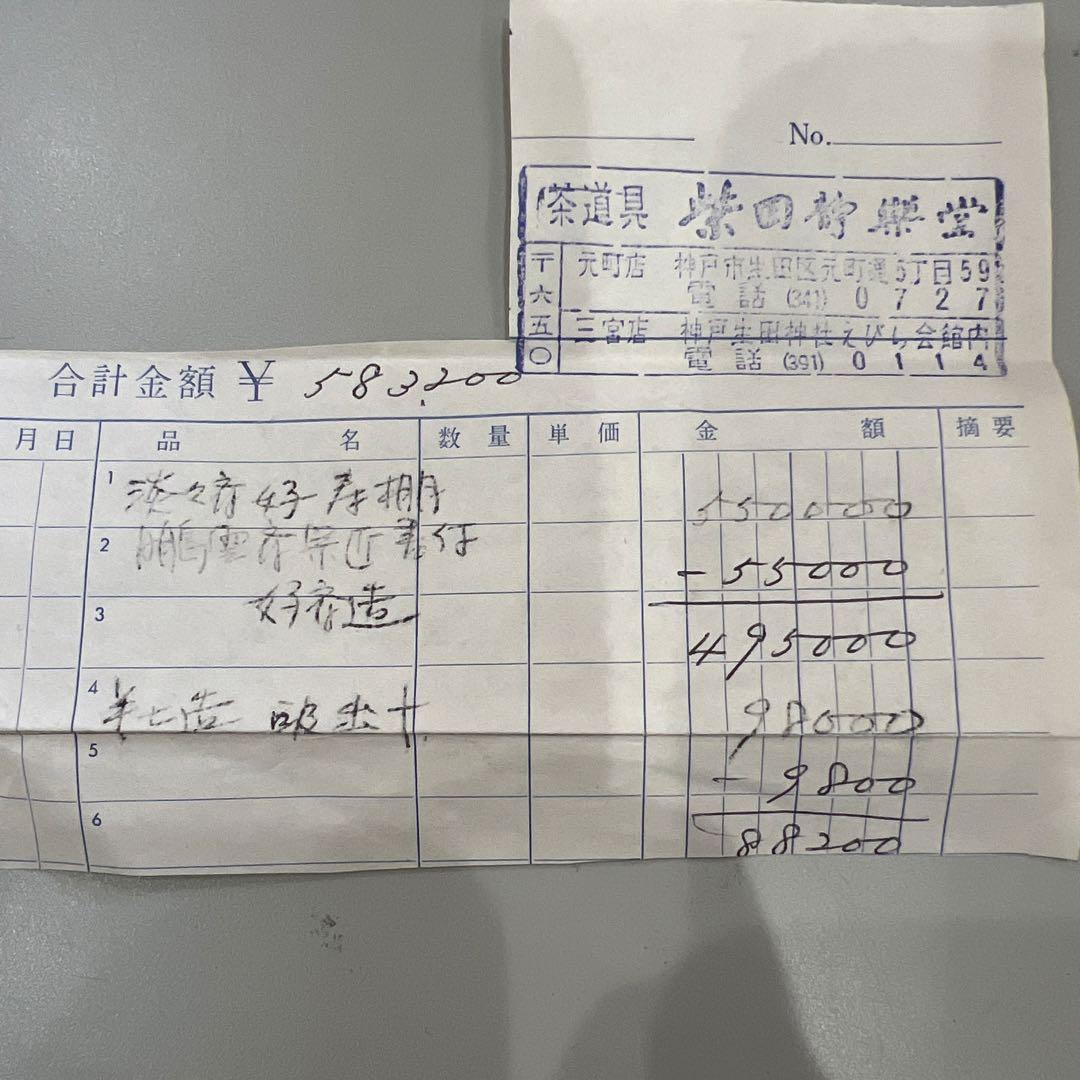 No.
茶道具 柴田静楽堂
〒六五〇
元町店 神戸市生田区元町通5丁目59
電話(341)0727
三宮店 神戸生田神社えびら会館内
電話(391)0114
合計金額 ¥ 583,200
月日 品名 数量 単価 金額 摘要
1 淡々斎好 寿棚 550000
2 鵬雲斎宗匠書付 -55000
3 好斎造 495000
4 98000
5 -9800
6 88200